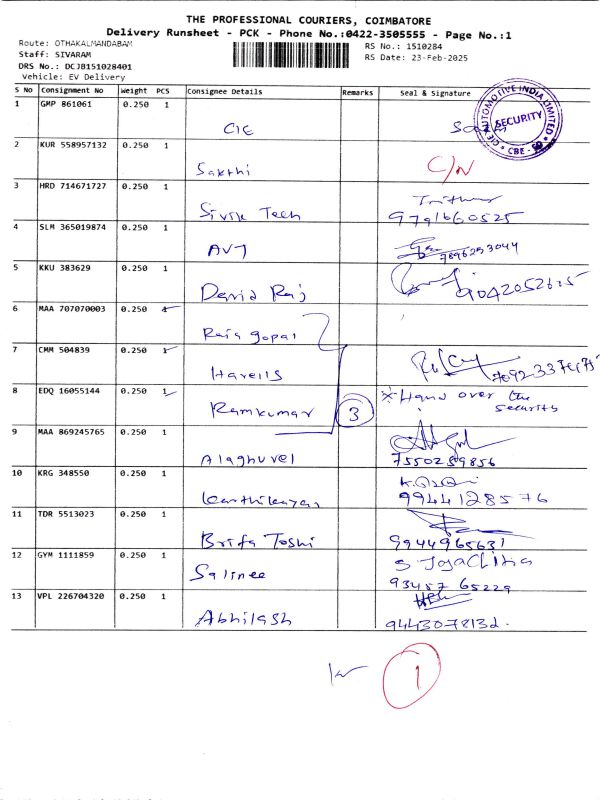 THE PROFESSIONAL COURIERS, COIMBATORE
Delivery Runsheet - PCK - Phone No.:0422-3505555 - Page No.:1
Route: OTHAKALMANDABAM
RS No.: 1510284
Staff: SIVARAM
RS Date: 23-Feb-2025
DRS No.: DCJB151028401
Vehicle: EV Delivery
S No Consignment No Weight PCS Consignee Details Remarks Seal & Signature
1 GMP 861061 0.250 1 CIE
CIE AUTOMOTIVE INDIA LIMITED SECURITY CBE
2 KUR 558957132 0.250 1 Sakthi C/N
3 HRD 714671727 0.250 1 Sivik Tech 9791660525
4 SLM 365019874 0.250 1 AVJ 7896293044
5 KKU 383629 0.250 1 David Raj
6 MAA 707070003 0.250 1 Raja gopal
7 CMM 504839 0.250 1 Havells
8 EDQ 16055144 0.250 1 Ramkumar 3 * Hand over the security
9 MAA 869245765 0.250 1 Alaghuvel 7550289856
10 KRG 348550 0.250 1 Karthikeyan 9944128576
11 TDR 5513023 0.250 1 Brifa Toshi 9944965631
12 GYM 1111859 0.250 1 Salinee 93457 65229
13 VPL 226704320 0.250 1 Abhilash 9443078132.
1